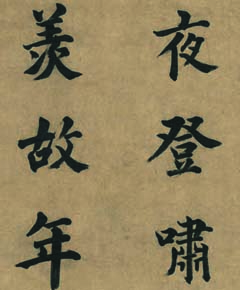 夜登嘯
羨故年